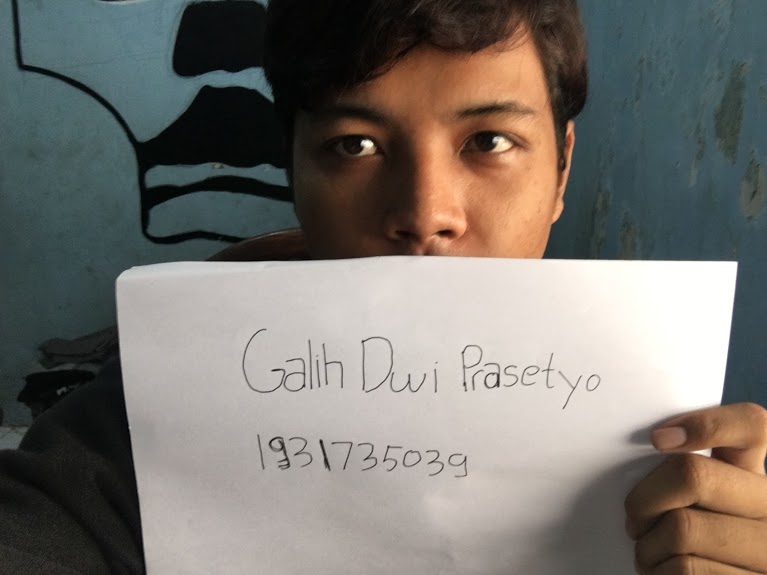 Galih Dwi Prasetyo
1931735039